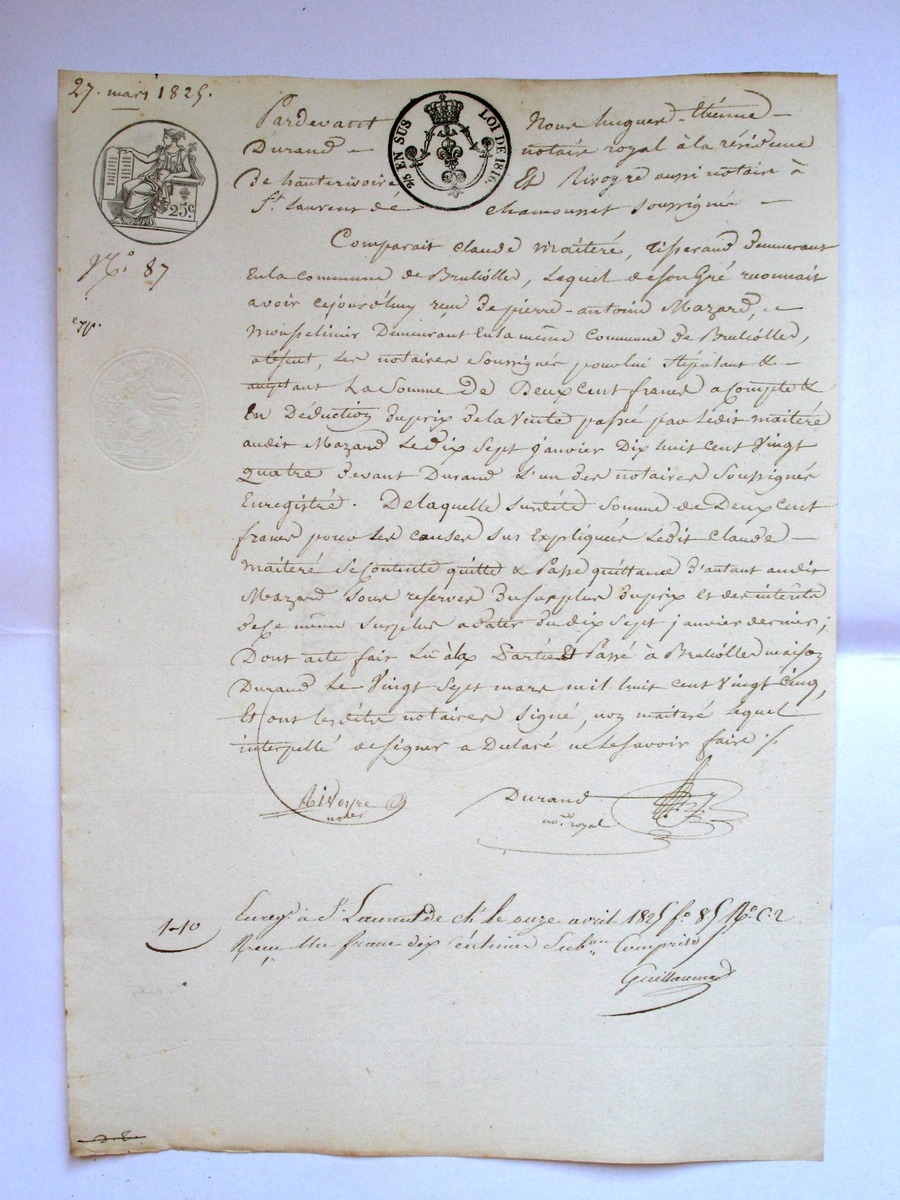 27. mars 1825.
Pardevant Nous hugues-étienne
Durand notaire royal à la résidence
de hauterivoire Et Rivoyre aussi notaire à
St. laurent de chamousset soussignés
25 EN SUS LOI DE 1816.
25c.
No. 87
Comparait Claude maiteré, tisserand demeurant
En la commune de Brulliolle, Lequel de son Gré reconnait
avoir cejourd'huy reçu de pierre-antoine Mazard,
Mousselinier Demeurant En la même Commune de Brulliolles,
absent, Les notaires soussignés pour lui stipulant &
acceptant La Somme de Deux cent francs a compte &
En Déduction du prix de la Vente passée par Ledit maiteré
audit Mazard Le dix sept janvier Dix huit cent Vingt
quatre devant Durand L'un des notaires soussignés
Enregistré. De laquelle susdite Somme de Deux cent
francs pour les causes sus Expliquées Ledit Claude
Maiteré se Contente quitte & Passe quittance d'autant audit
Mazard sous reserves du surplus du prix Et des intérêts
de Ce même surplus a dater du dix sept janvier dernier;
Dont acte fait Lu à la Partie Et Passé à Brulliolles maison
Durand Le Vingt sept mars mil huit cent Vingt Cinq,
Et ont lesdits notaires signé, non maiteré lequel
interpellé de signer a Déclaré ne Le savoir faire ./.
Rivoyre
Durand
nore. royal
1-10
Enregé. à St. Laurent de ch. le onze avril 1825 fo. 85 Ro. C. 2
Reçu Un franc dix centimes Subon. Comprise
Guillaume